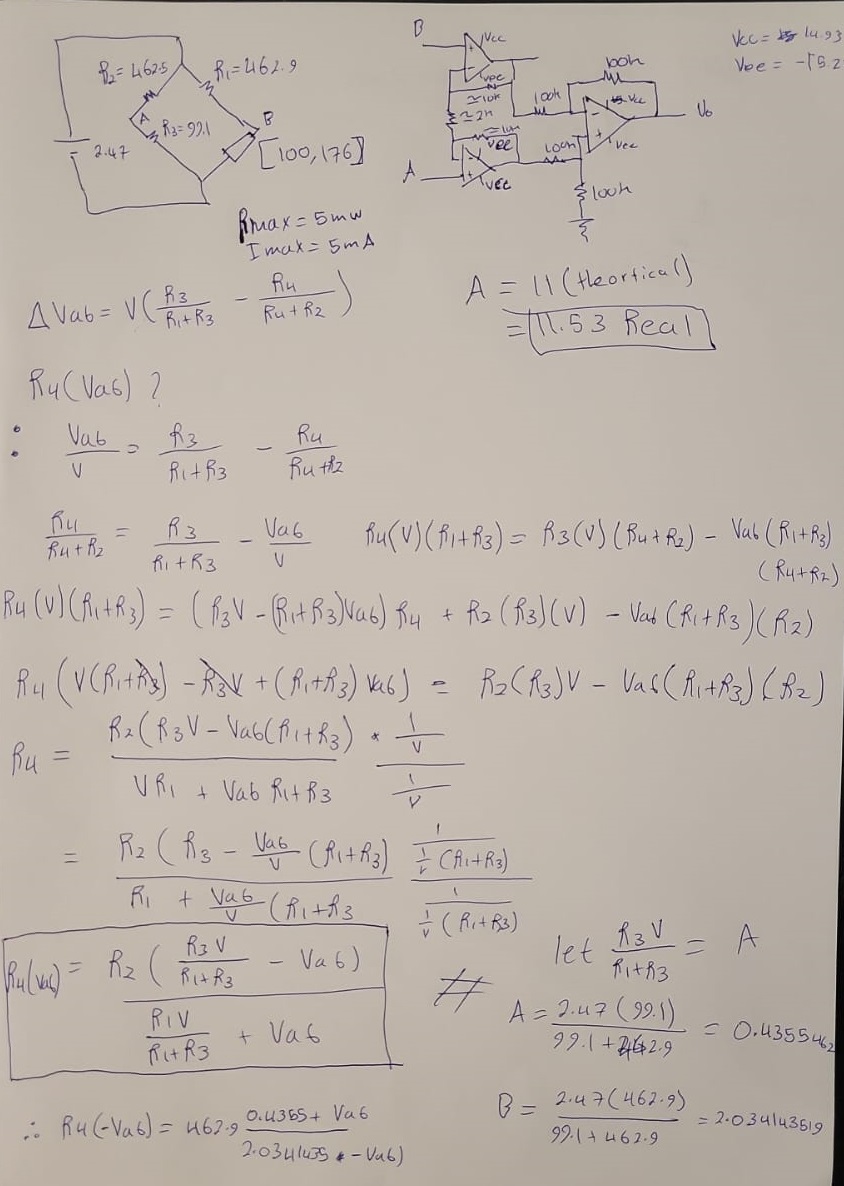 R2= 462.5 R1=462.9
A
R3=99.1
B
2.47
[100,176]
Rmax = 5mw
Imax = 5mA
B
Vcc
Vcc = 14.93
Vee = -15.2
Vee
≃10k
≃2k
≃10k
Vee
100k
100k
100k
Vcc
Vee
Vo
A
Vcc
100k
ΔVab = V(R3/(R1+R3) - R4/(R4+R2))
A = 11 (theortical)
= 11.53 Real
R4(Vab) ?
: Vab/V = R3/(R1+R3) - R4/(R4+R2)
R4/(R4+R2) = R3/(R1+R3) - Vab/V
R4(V)(R1+R3) = R3(V)(R4+R2) - Vab(R1+R3)
(R4+R2)
R4(V)(R1+R3) = (R3V - (R1+R3)Vab) R4 + R2(R3)(V) - Vab(R1+R3)(R2)
R4(V(R1+R3) - R3V + (R1+R3) Vab) = R2(R3)V - Vab(R1+R3)(R2)
R4 = R2(R3V - Vab(R1+R3)) / (VR1 + Vab R1+R3) * (1/V)/(1/V)
= R2(R3 - Vab/V (R1+R3) / R1 + Vab/V (R1+R3 (1/(1/V (R1+R3)))/(1/(1/V (R1+R3)))
R4(Vab) = R2(R3V/(R1+R3) - Vab) / (R1V/(R1+R3) + Vab)
#
let R3V/(R1+R3) = A
A = 2.47(99.1)/(99.1+462.9) = 0.4355462
B = 2.47(462.9)/(99.1+462.9) = 2.034143519
∴ R4(-Vab) = 462.9 (0.4355+ Vab)/(2.0341435 - Vab)